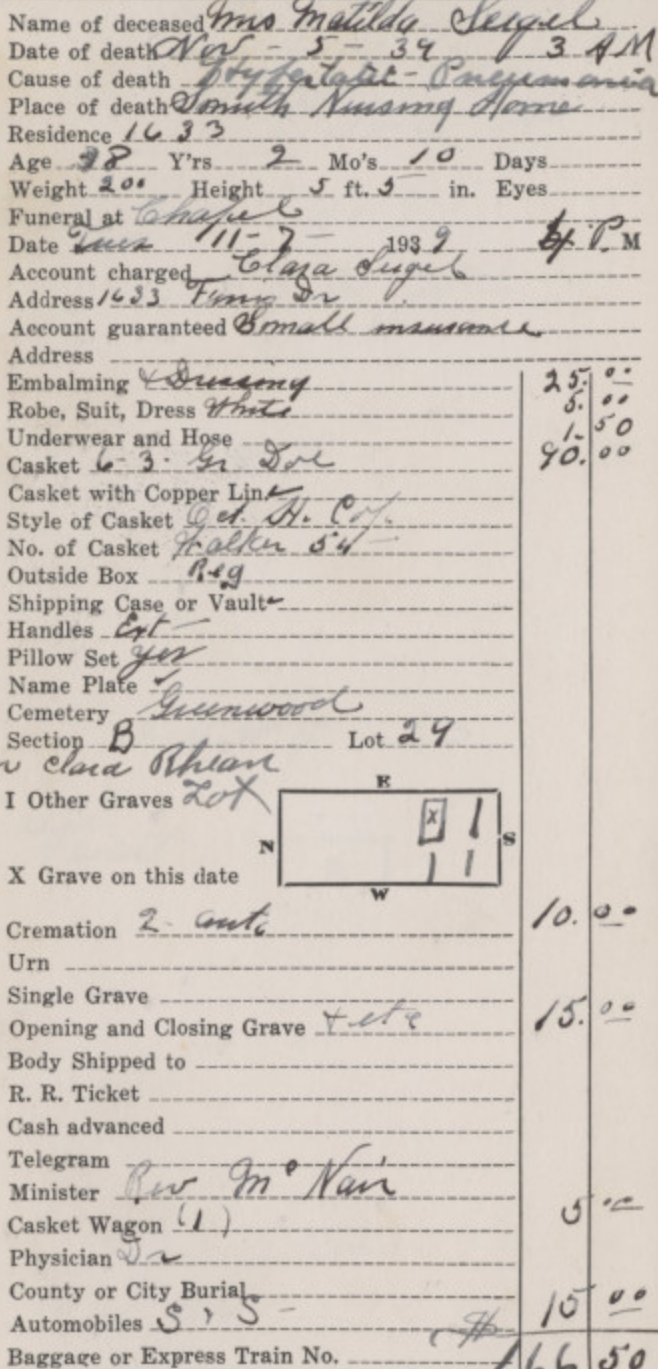 Name of deceased Mrs Matilda Seigel
Date of death Nov - 5 - 39 3 AM
Cause of death Hypostatic - Pneumonia
Place of death Smith Nursing Home
Residence 1633
Age 88 Y'rs 2 Mo's 10 Days
Weight 200 Height 5 ft. 5 in. Eyes
Funeral at Chapel
Date Tues 11-7- 1939 4 P. M
Account charged Clara Seigel
Address 1633 Dr
Account guaranteed Small insurance
Address
Embalming & Dressing 25.00
Robe, Suit, Dress White 5.00
Underwear and Hose 1.50
Casket 6-3- Gr Doe 90.00
Casket with Copper Lin.
Style of Casket Oct. H.
No. of Casket Walker 54
Outside Box Reg
Shipping Case or Vault
Handles Ext
Pillow Set yes
Name Plate ✓
Cemetery Greenwood
Section B Lot 29
Clara
I Other Graves Lot
E
X
N S
X Grave on this date
W
Cremation 2 auto 10.00
Urn
Single Grave
Opening and Closing Grave + etc 15.00
Body Shipped to
R. R. Ticket
Cash advanced
Telegram
Minister Rev Mc Nair
Casket Wagon (1) 5
Physician Dr
County or City Burial
Automobiles S, S - 15 00
Baggage or Express Train No. 166 50